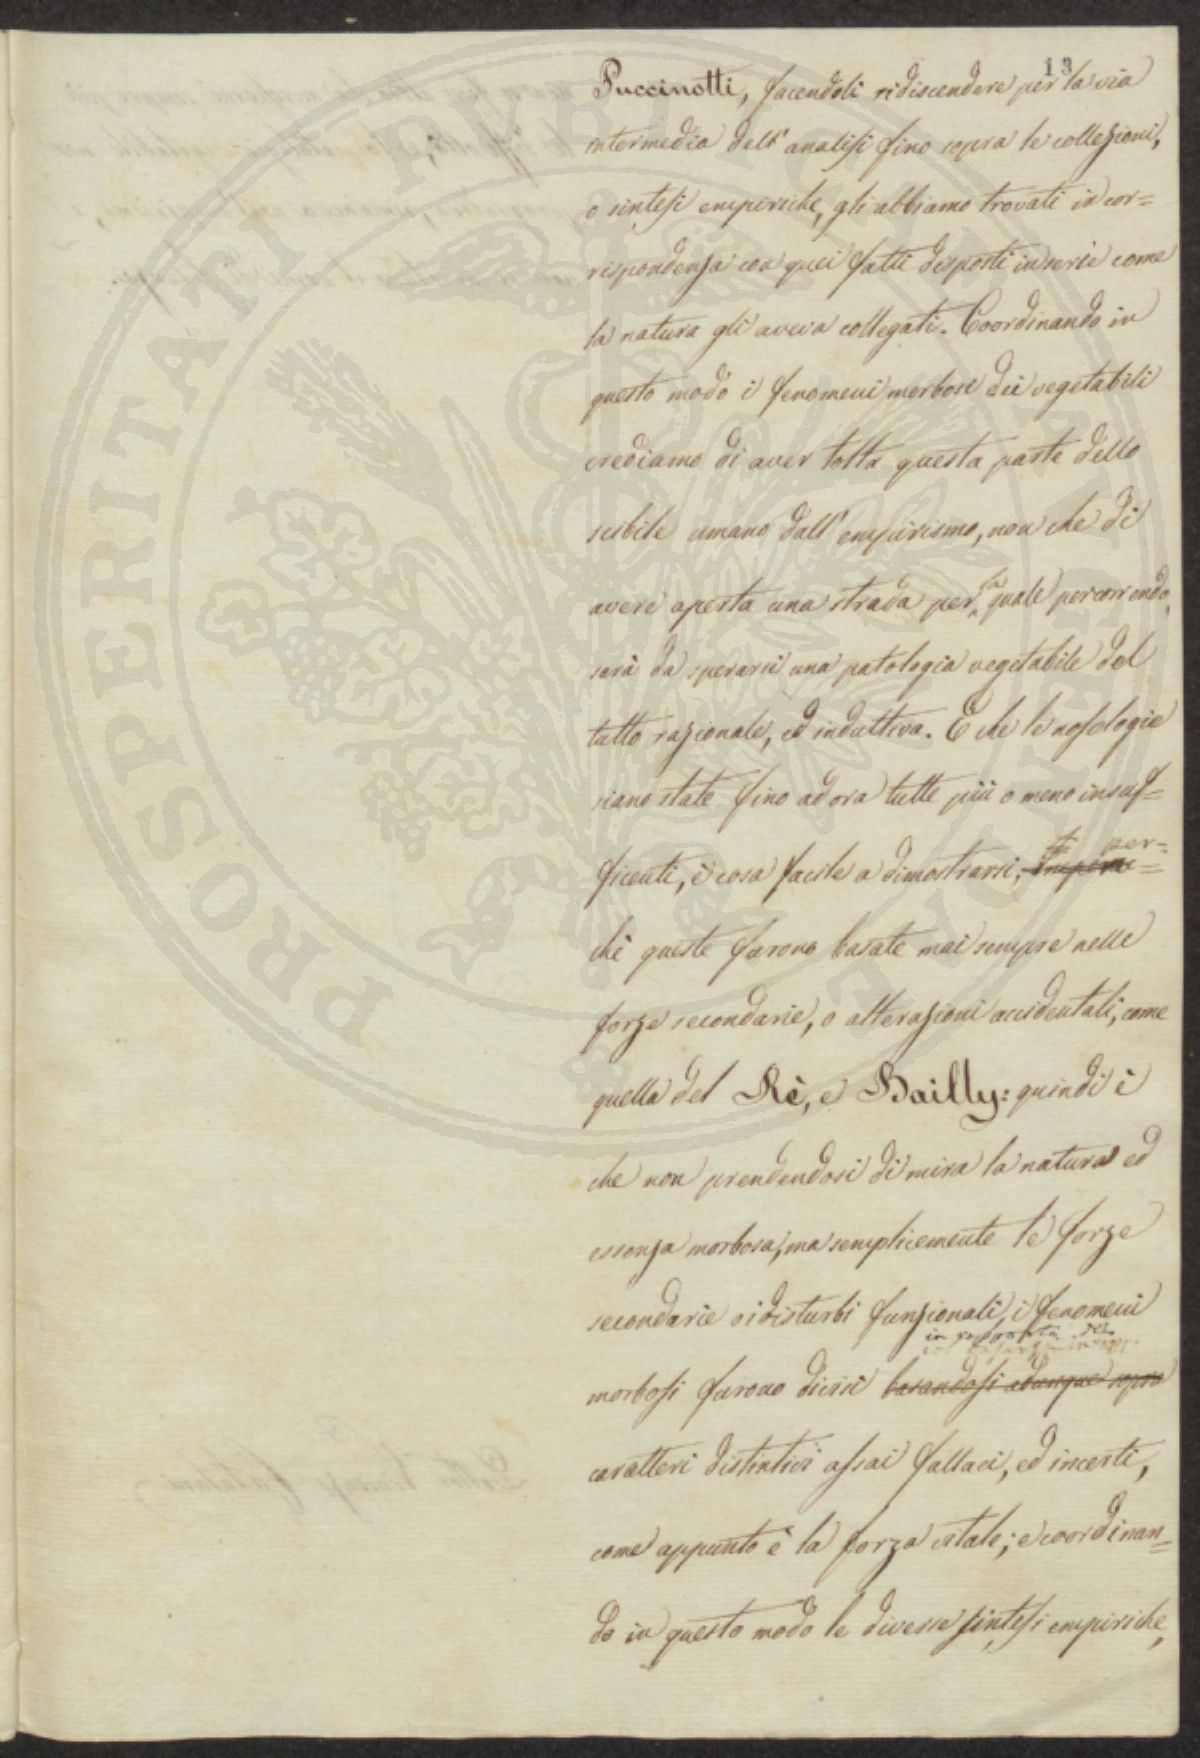 13
Puccinotti, facendoli ridiscendere per la via
intermedia dell' analisi fino sopra le collezioni,
o sintesi empiriche, gli abbiamo trovati in cor=
rispondenza con quei fatti disposti in serie come
la natura gli aveva collegati. Coordinando in
questo modo i fenomeni morbosi dei vegetabili
crediamo di aver tolta questa parte dello
scibile umano dall' empirismo, non che di
avere aperta una strada per la quale percorrendo,
sarà da sperarsi una patologia vegetabile del
tutto razionale, ed induttiva. E che le nosologie
siano state fino ad ora tutte più o meno insuf=
ficenti, è cosa facile a dimostrarsi, per=
chè queste furono basate mai sempre nelle
forze secondarie, o alterazioni accidentali, come
quella del Rè, e Bailly: quindi è
che non prendendosi di mira la natura ed
essenza morbosa, ma semplicemente le forze
secondarie o i disturbi funzionali, i fenomeni
in rapporto dei
morbosi furono divisi basandosi adunque sopra
caratteri distintivi assai fallaci, ed incerti,
come appunto è la forza vitale; e coordinan=
do in questo modo le diverse sintesi empiriche,
PROSPERITATI PUBLICAE AUGENDAE